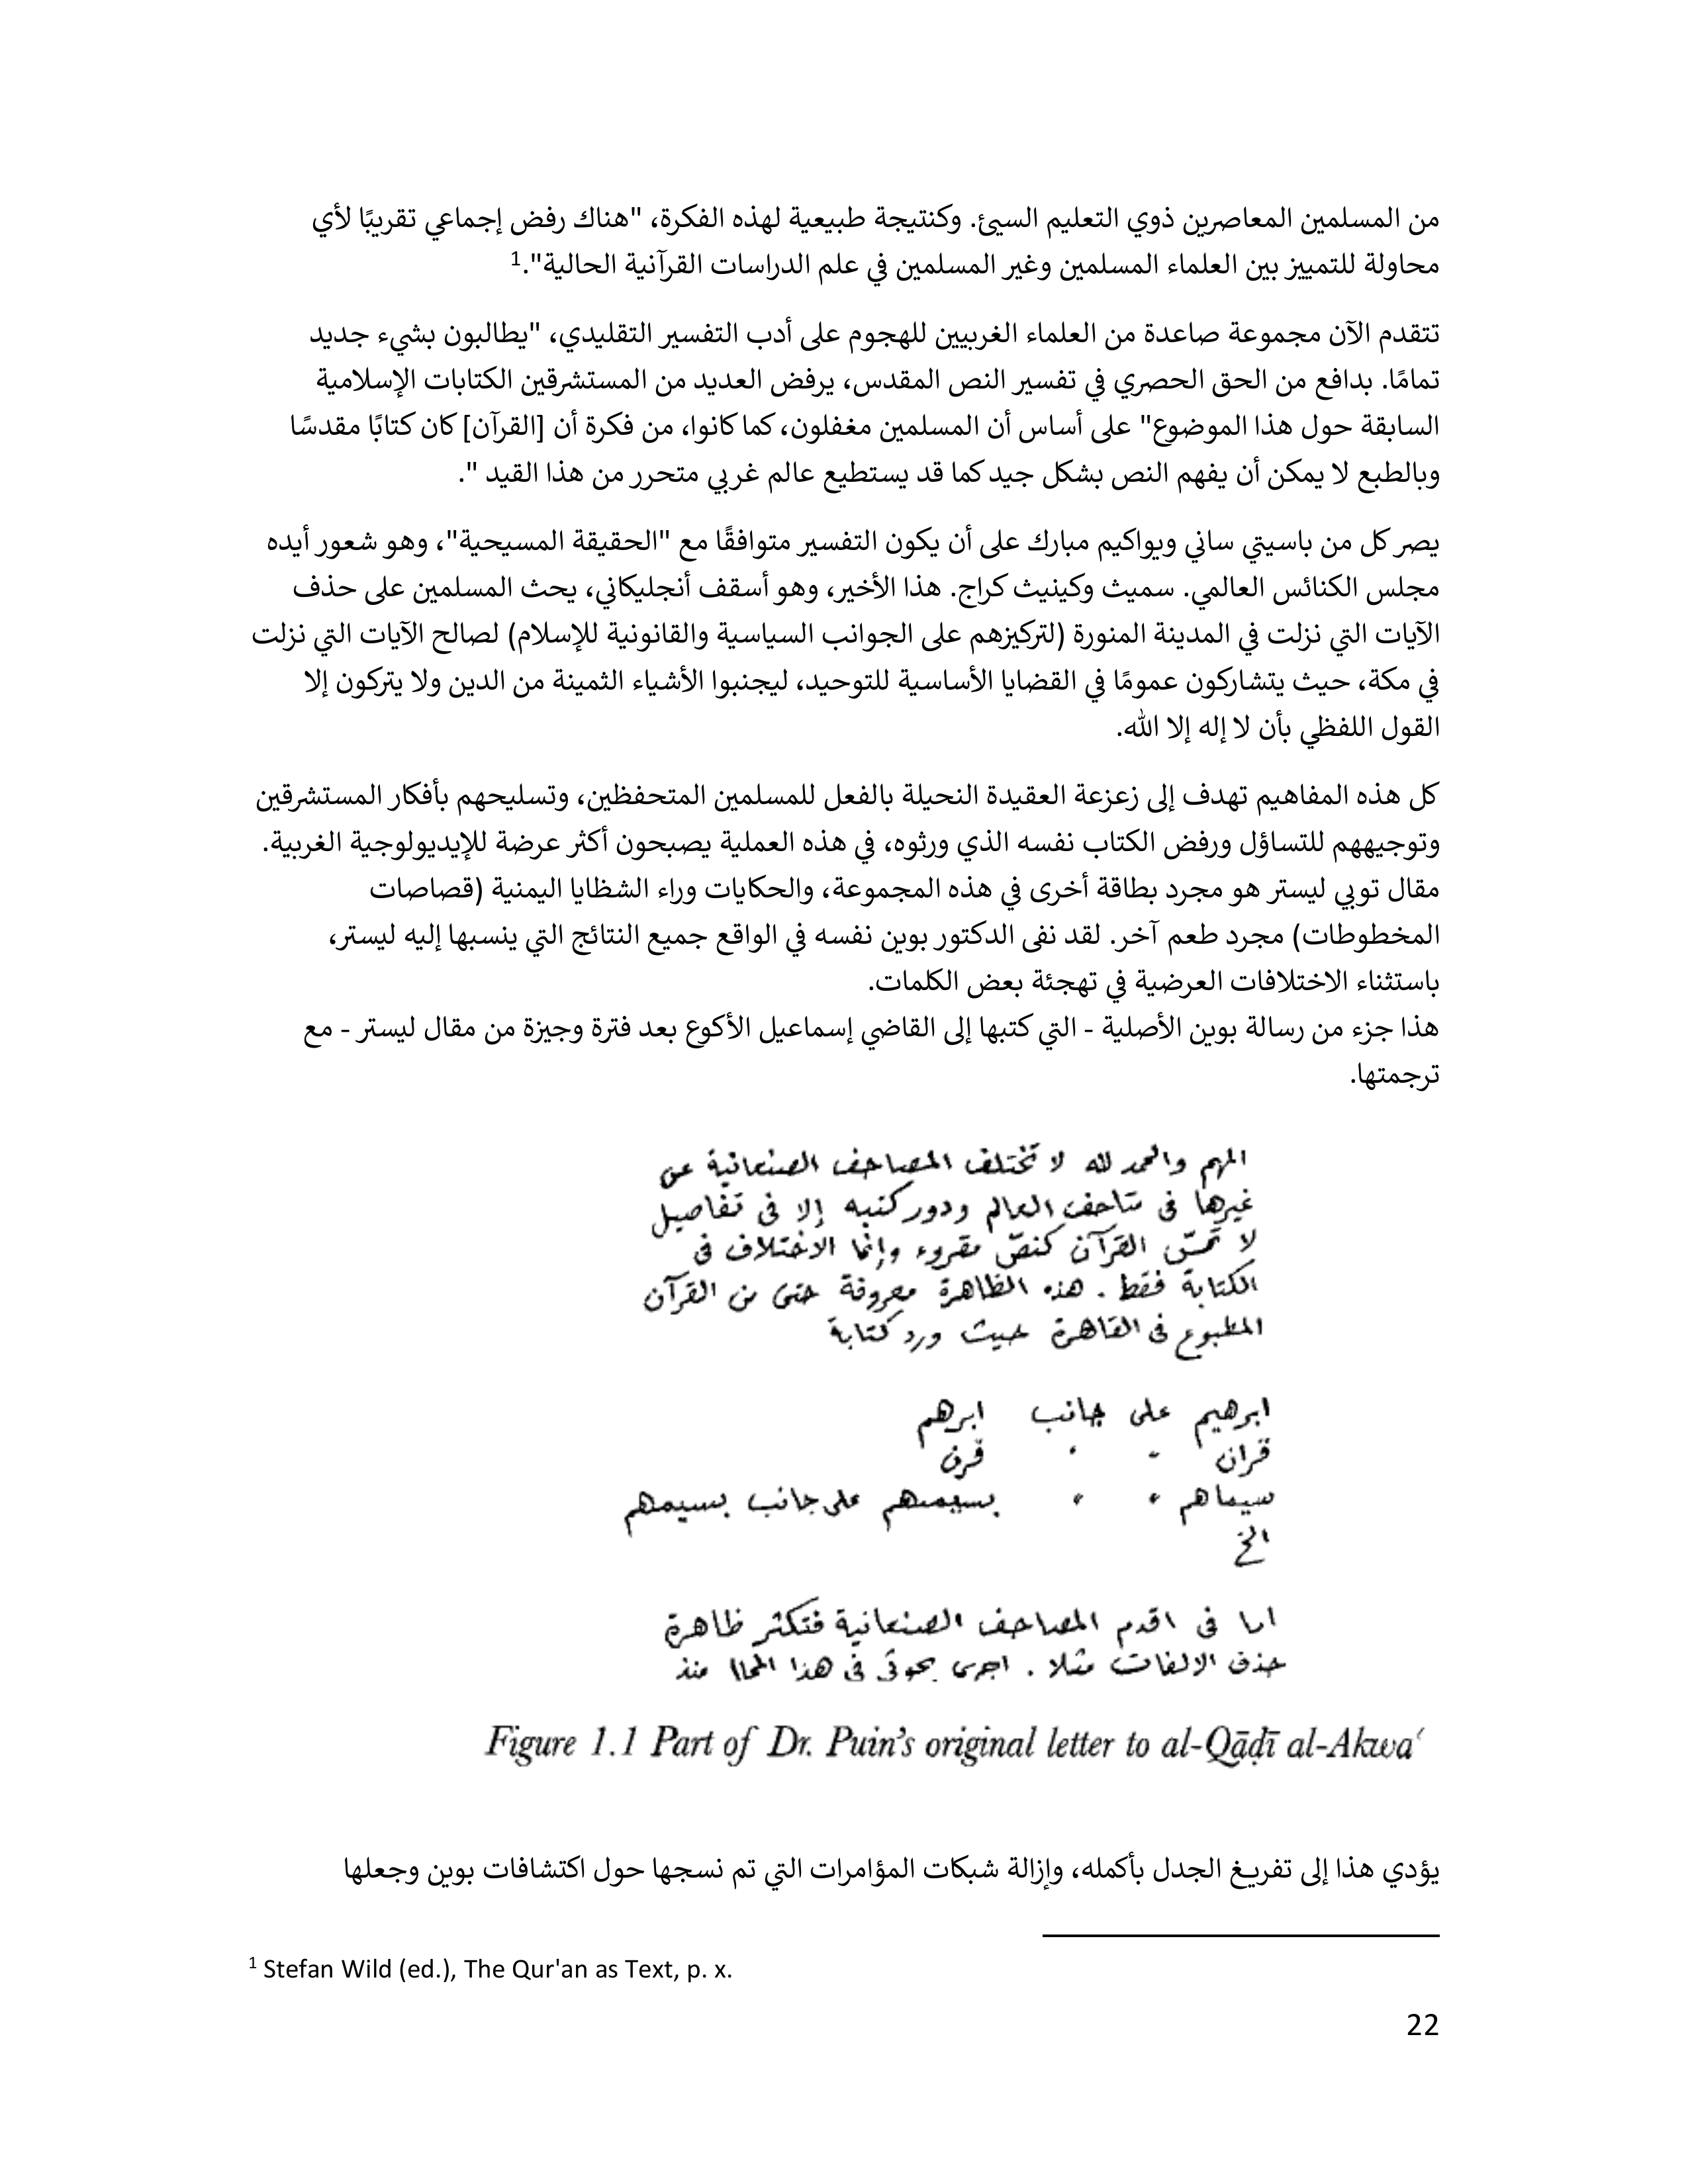 من المسلمين المعاصرين ذوي التعليم السيئ. وكنتيجة طبيعية لهذه الفكرة، "هناك رفض إجماعي تقريبًا لأي
محاولة للتمييز بين العلماء المسلمين وغير المسلمين في علم الدراسات القرآنية الحالية".1
تتقدم الآن مجموعة صاعدة من العلماء الغربيين للهجوم على أدب التفسير التقليدي، "يطالبون بشيء جديد
تمامًا. بدافع من الحق الحصري في تفسير النص المقدس، يرفض العديد من المستشرقين الكتابات الإسلامية
السابقة حول هذا الموضوع" على أساس أن المسلمين مغفلون، كما كانوا، من فكرة أن [القرآن] كان كتابًا مقدسًا
وبالطبع لا يمكن أن يفهم النص بشكل جيد كما قد يستطيع عالم غربي متحرر من هذا القيد ".
يصر كل من باسيتي ساني ويواكيم مبارك على أن يكون التفسير متوافقًا مع "الحقيقة المسيحية"، وهو شعور أيده
مجلس الكنائس العالمي. سميث وكينيث كراج. هذا الأخير، وهو أسقف أنجليكاني، يحث المسلمين على حذف
الآيات التي نزلت في المدينة المنورة (لتركيزهم على الجوانب السياسية والقانونية للإسلام) لصالح الآيات التي نزلت
في مكة، حيث يتشاركون عمومًا في القضايا الأساسية للتوحيد، ليجنبوا الأشياء الثمينة من الدين ولا يتركون إلا
القول اللفظي بأن لا إله إلا الله.
كل هذه المفاهيم تهدف إلى زعزعة العقيدة النحيلة بالفعل للمسلمين المتحفظين، وتسليحهم بأفكار المستشرقين
وتوجيههم للتساؤل ورفض الكتاب نفسه الذي ورثوه، في هذه العملية يصبحون أكثر عرضة للإيديولوجية الغربية.
مقال توبي ليستر هو مجرد بطاقة أخرى في هذه المجموعة، والحكايات وراء الشظايا اليمنية (قصاصات
المخطوطات) مجرد طعم آخر. لقد نفى الدكتور بوين نفسه في الواقع جميع النتائج التي ينسبها إليه ليستر،
باستثناء الاختلافات العرضية في تهجئة بعض الكلمات.
هذا جزء من رسالة بوين الأصلية - التي كتبها إلى القاضي إسماعيل الأكوع بعد فترة وجيزة من مقال ليستر - مع
ترجمتها.
المهم والحمد لله لا تختلف المصاحف الصنعانية عن
غيرها في متاحف العالم ودور كتبه إلا في تفاصيل
لا تمسّ القرآن كنصّ مقروء وإنما الاختلاف في
الكتابة فقط . هذه الظاهرة معروفة حتى من القرآن
المطبوع في القاهرة حيث ورد كتابة
ابرهيم على جانب ابرهم
قرآن " " قرن
سيماهم " " بسيمهم على جانب بسيمهم
الخ
اما في اقدم المصاحف الصنعانية فتكثر ظاهرة
حذف الالفات مثلا . اجرى بحوثي في هذا المجال منذ
Figure 1.1 Part of Dr. Puin's original letter to al-Qāḍī al-Akwaʿ
يؤدي هذا إلى تفريغ الجدل بأكمله، وإزالة شبكات المؤامرات التي تم نسجها حول اكتشافات بوين وجعلها
1 Stefan Wild (ed.), The Qur'an as Text, p. x.
22